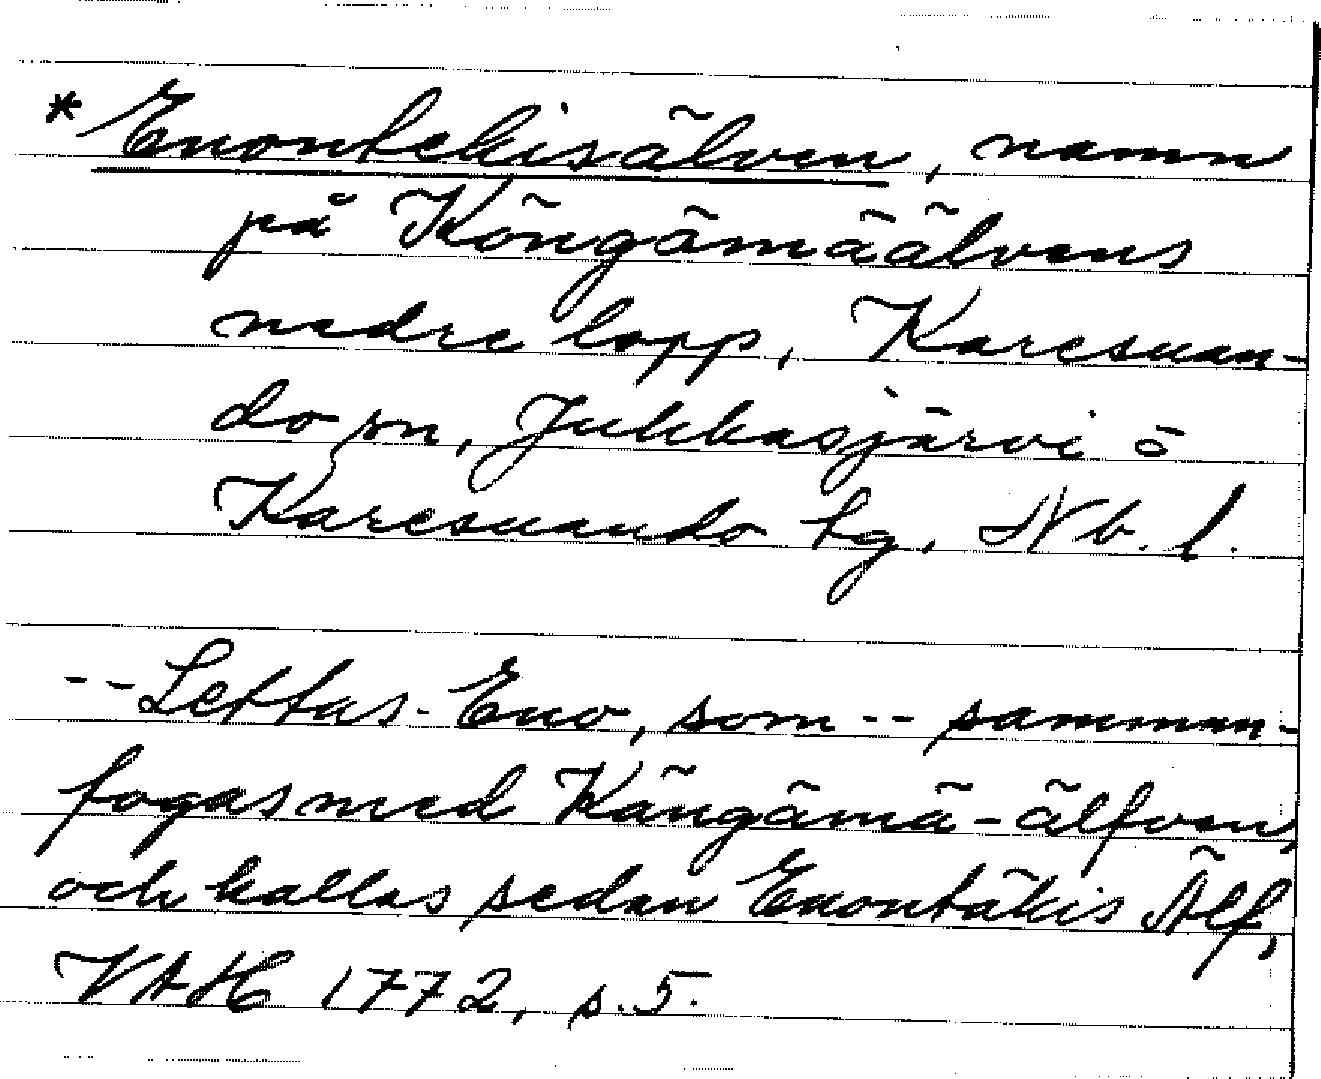 * Enontekisälven, namn
på Köngämäälvens
nedre lopp, Karesuan-
do sn, Jukkasjärvi o
Karesuando tg, Nb. l.
--Lettas-Eno, som -- samman-
fogas med Kängämä-älfven,
och kallas sedan Enontäkis Älf,
VAH 1772, s. 5.